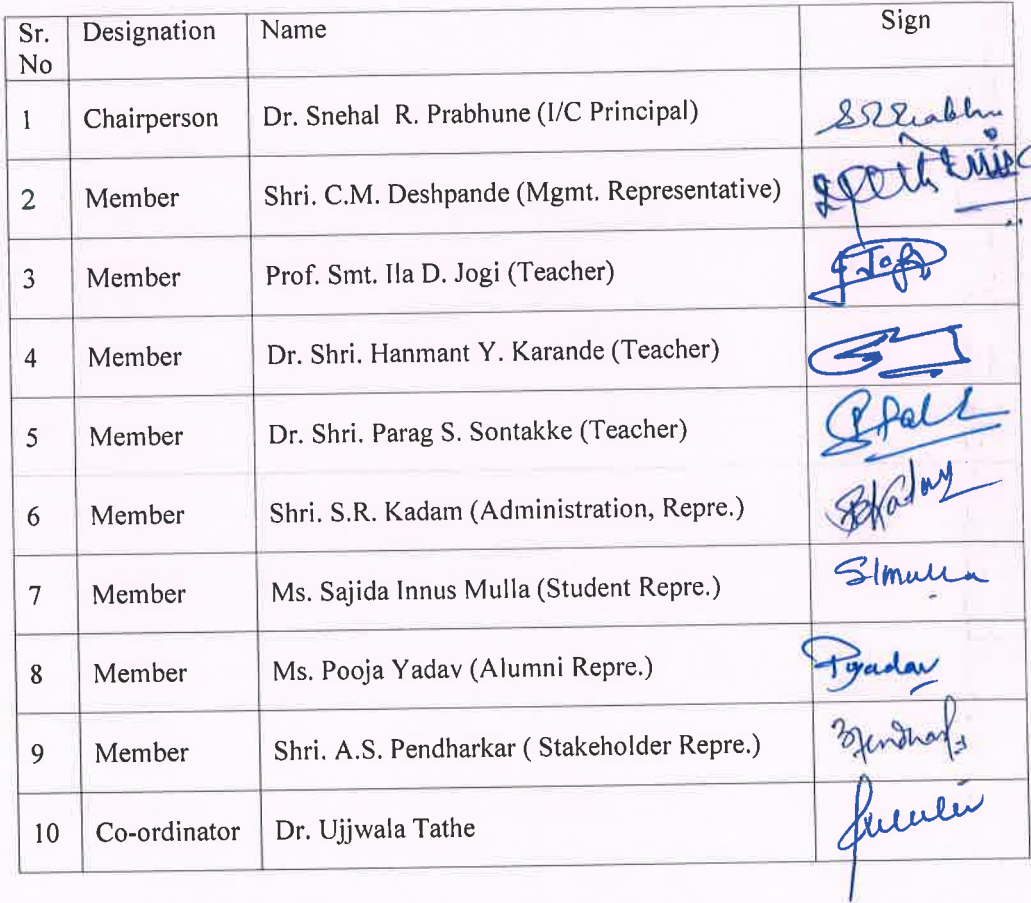 Sr. No Designation Name Sign
1 Chairperson Dr. Snehal R. Prabhune (I/C Principal) SRPrabhu
2 Member Shri. C.M. Deshpande (Mgmt. Representative)
3 Member Prof. Smt. Ila D. Jogi (Teacher)
4 Member Dr. Shri. Hanmant Y. Karande (Teacher)
5 Member Dr. Shri. Parag S. Sontakke (Teacher)
6 Member Shri. S.R. Kadam (Administration, Repre.)
7 Member Ms. Sajida Innus Mulla (Student Repre.) SImulla
8 Member Ms. Pooja Yadav (Alumni Repre.) Pyadav
9 Member Shri. A.S. Pendharkar ( Stakeholder Repre.)
10 Co-ordinator Dr. Ujjwala Tathe